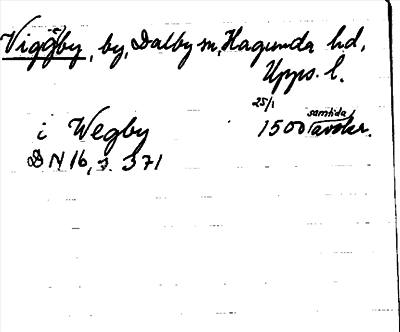 Viggby, by, Dalby sn, Hagunda hd,
Upps. l.
i Wegby 25/1 1500 samtida avskr.
DN 16, s. 371